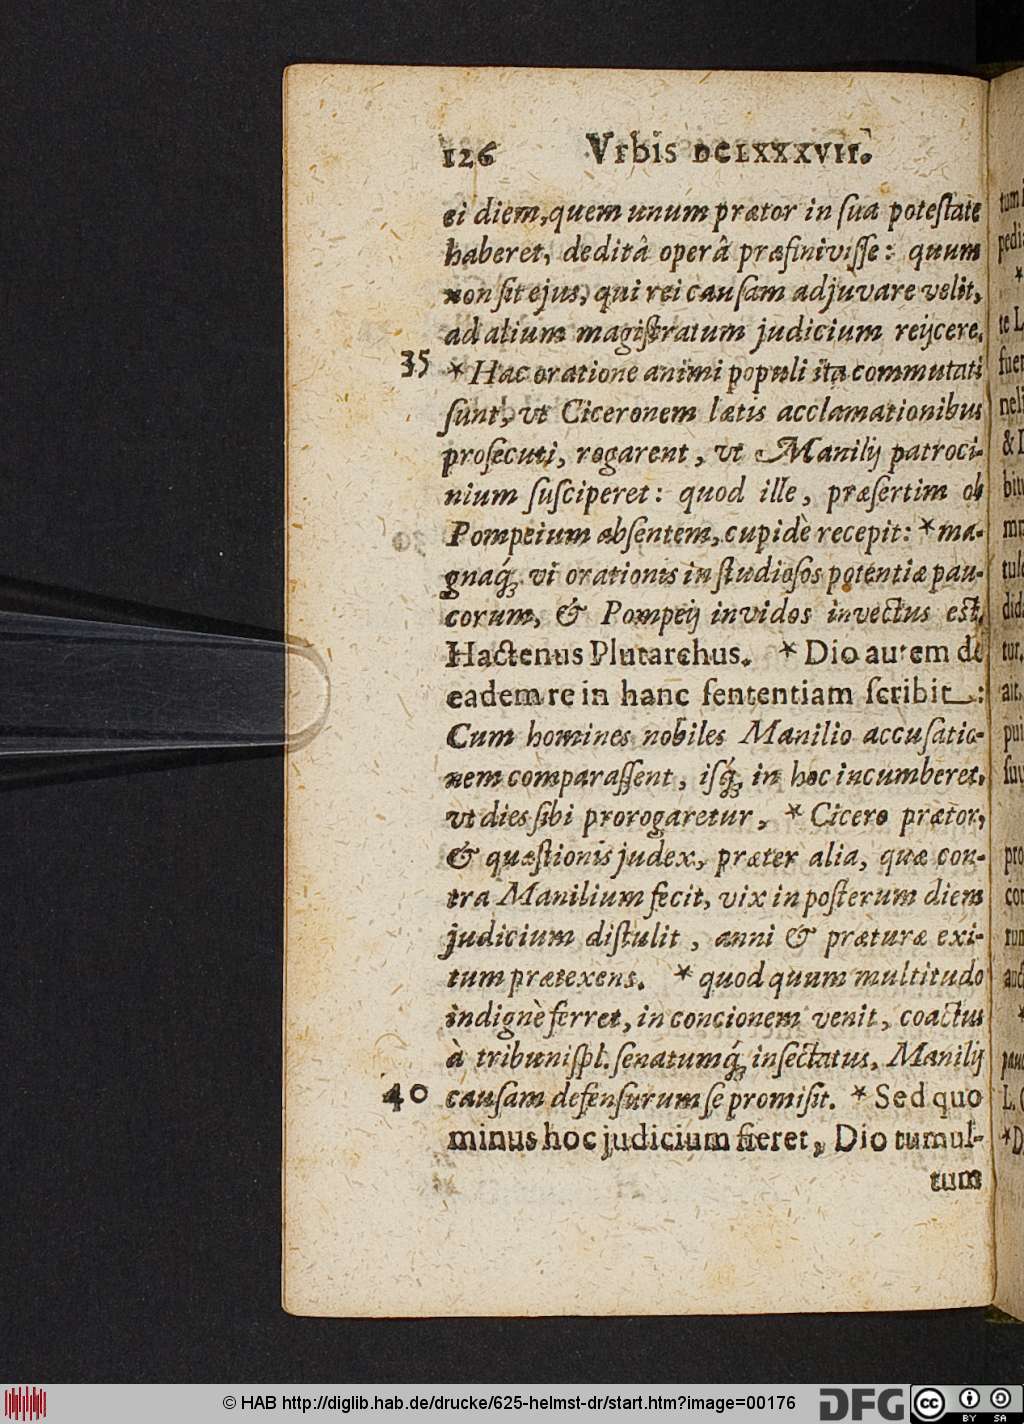 126 Vrbis DCLXXXVII.
ei diem, quem unum prætor in ſua poteſtate
haberet, deditâ operâ præfiniviſſe: quum
non ſit ejus, qui rei cauſam adjuvare velit,
ad alium magiſtratum judicium reijcere.
35 * Hac oratione animi populi ita commutati
ſunt, vt Ciceronem lætis acclamationibus
proſecuti, rogarent, vt Manilij patroci-
nium ſuſciperet: quod ille, præſertim ob
Pompeium abſentem, cupidè recepit: * ma-
gnaq́; vi orationis in ſtudioſos potentiæ pau-
corum, & Pompeij invidos invectus eſt.
Hactenus Plutarchus. * Dio autem de
eadem re in hanc ſententiam ſcribit:
Cum homines nobiles Manilio accuſatio-
nem comparaſſent, iſq́; in hoc incumberet,
vt dies ſibi prorogaretur, * Cicero prætor,
& quæſtionis judex, præter alia, quæ con-
tra Manilium fecit, vix in poſterum diem
judicium diſtulit, anni & præturæ exi-
tum prætexens. * quod quum multitudo
indignè ferret, in concionem venit, coactus
à tribunis pl. ſenatumq́; inſectatus, Manilij
40 cauſam defenſurum ſe promiſit. * Sed quo
minus hoc judicium fieret, Dio tumul-
tum
© HAB http://diglib.hab.de/drucke/625-helmst-dr/start.htm?image=00176 DFG cc BY SA